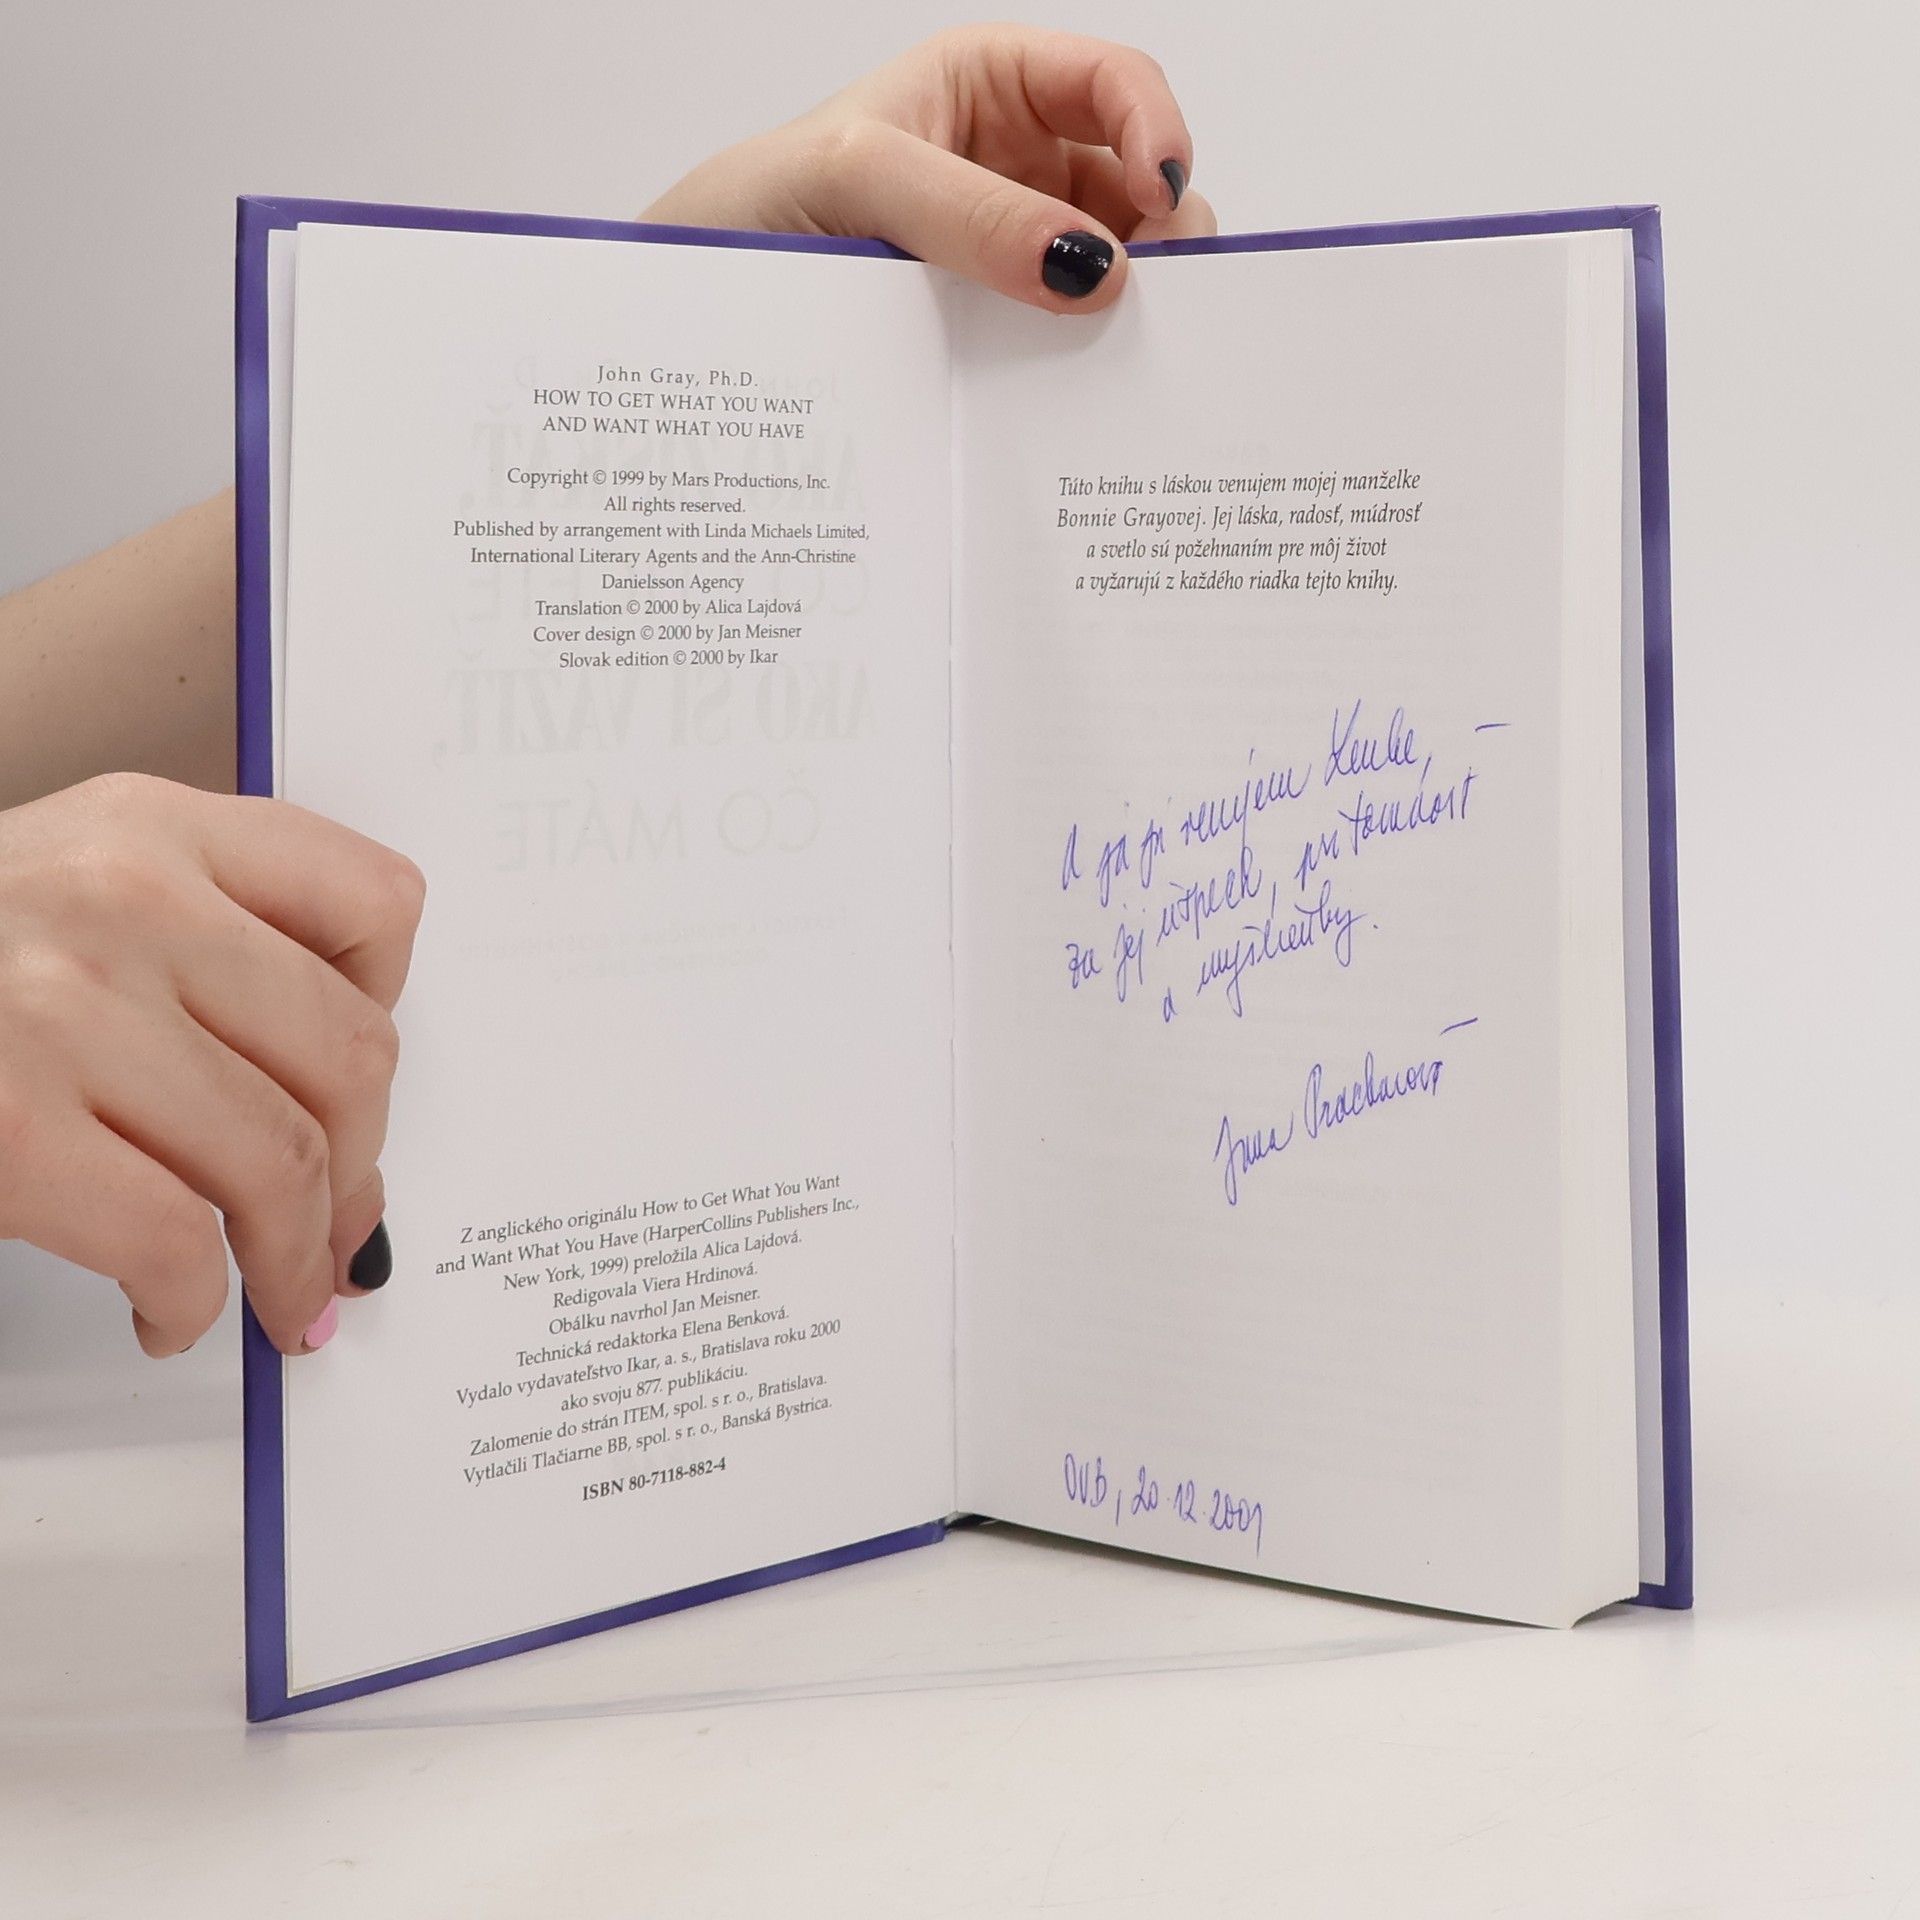 John Gray, Ph.D.
HOW TO GET WHAT YOU WANT
AND WANT WHAT YOU HAVE
Copyright © 1999 by Mars Productions, Inc.
All rights reserved.
Published by arrangement with Linda Michaels Limited,
International Literary Agents and the Ann-Christine
Danielsson Agency
Translation © 2000 by Alica Lajdová
Cover design © 2000 by Jan Meisner
Slovak edition © 2000 by Ikar
Z anglického originálu How to Get What You Want
and Want What You Have (HarperCollins Publishers Inc.,
New York, 1999) preložila Alica Lajdová.
Redigovala Viera Hrdinová.
Obálku navrhol Jan Meisner.
Technická redaktorka Elena Benková.
Vydalo vydavateľstvo Ikar, a. s., Bratislava roku 2000
ako svoju 877. publikáciu.
Zalomenie do strán ITEM, spol. s r. o., Bratislava.
Vytlačili Tlačiarne BB, spol. s r. o., Banská Bystrica.
ISBN 80-7118-882-4
Túto knihu s láskou venujem mojej manželke
Bonnie Grayovej. Jej láska, radosť, múdrosť
a svetlo sú požehnaním pre môj život
a vyžarujú z každého riadka tejto knihy.
A ja ju venujem Lenke, –
za jej úspech, prítomnosť
a myšlienky.
Jana Prachárová
DVB, 20.12.2001